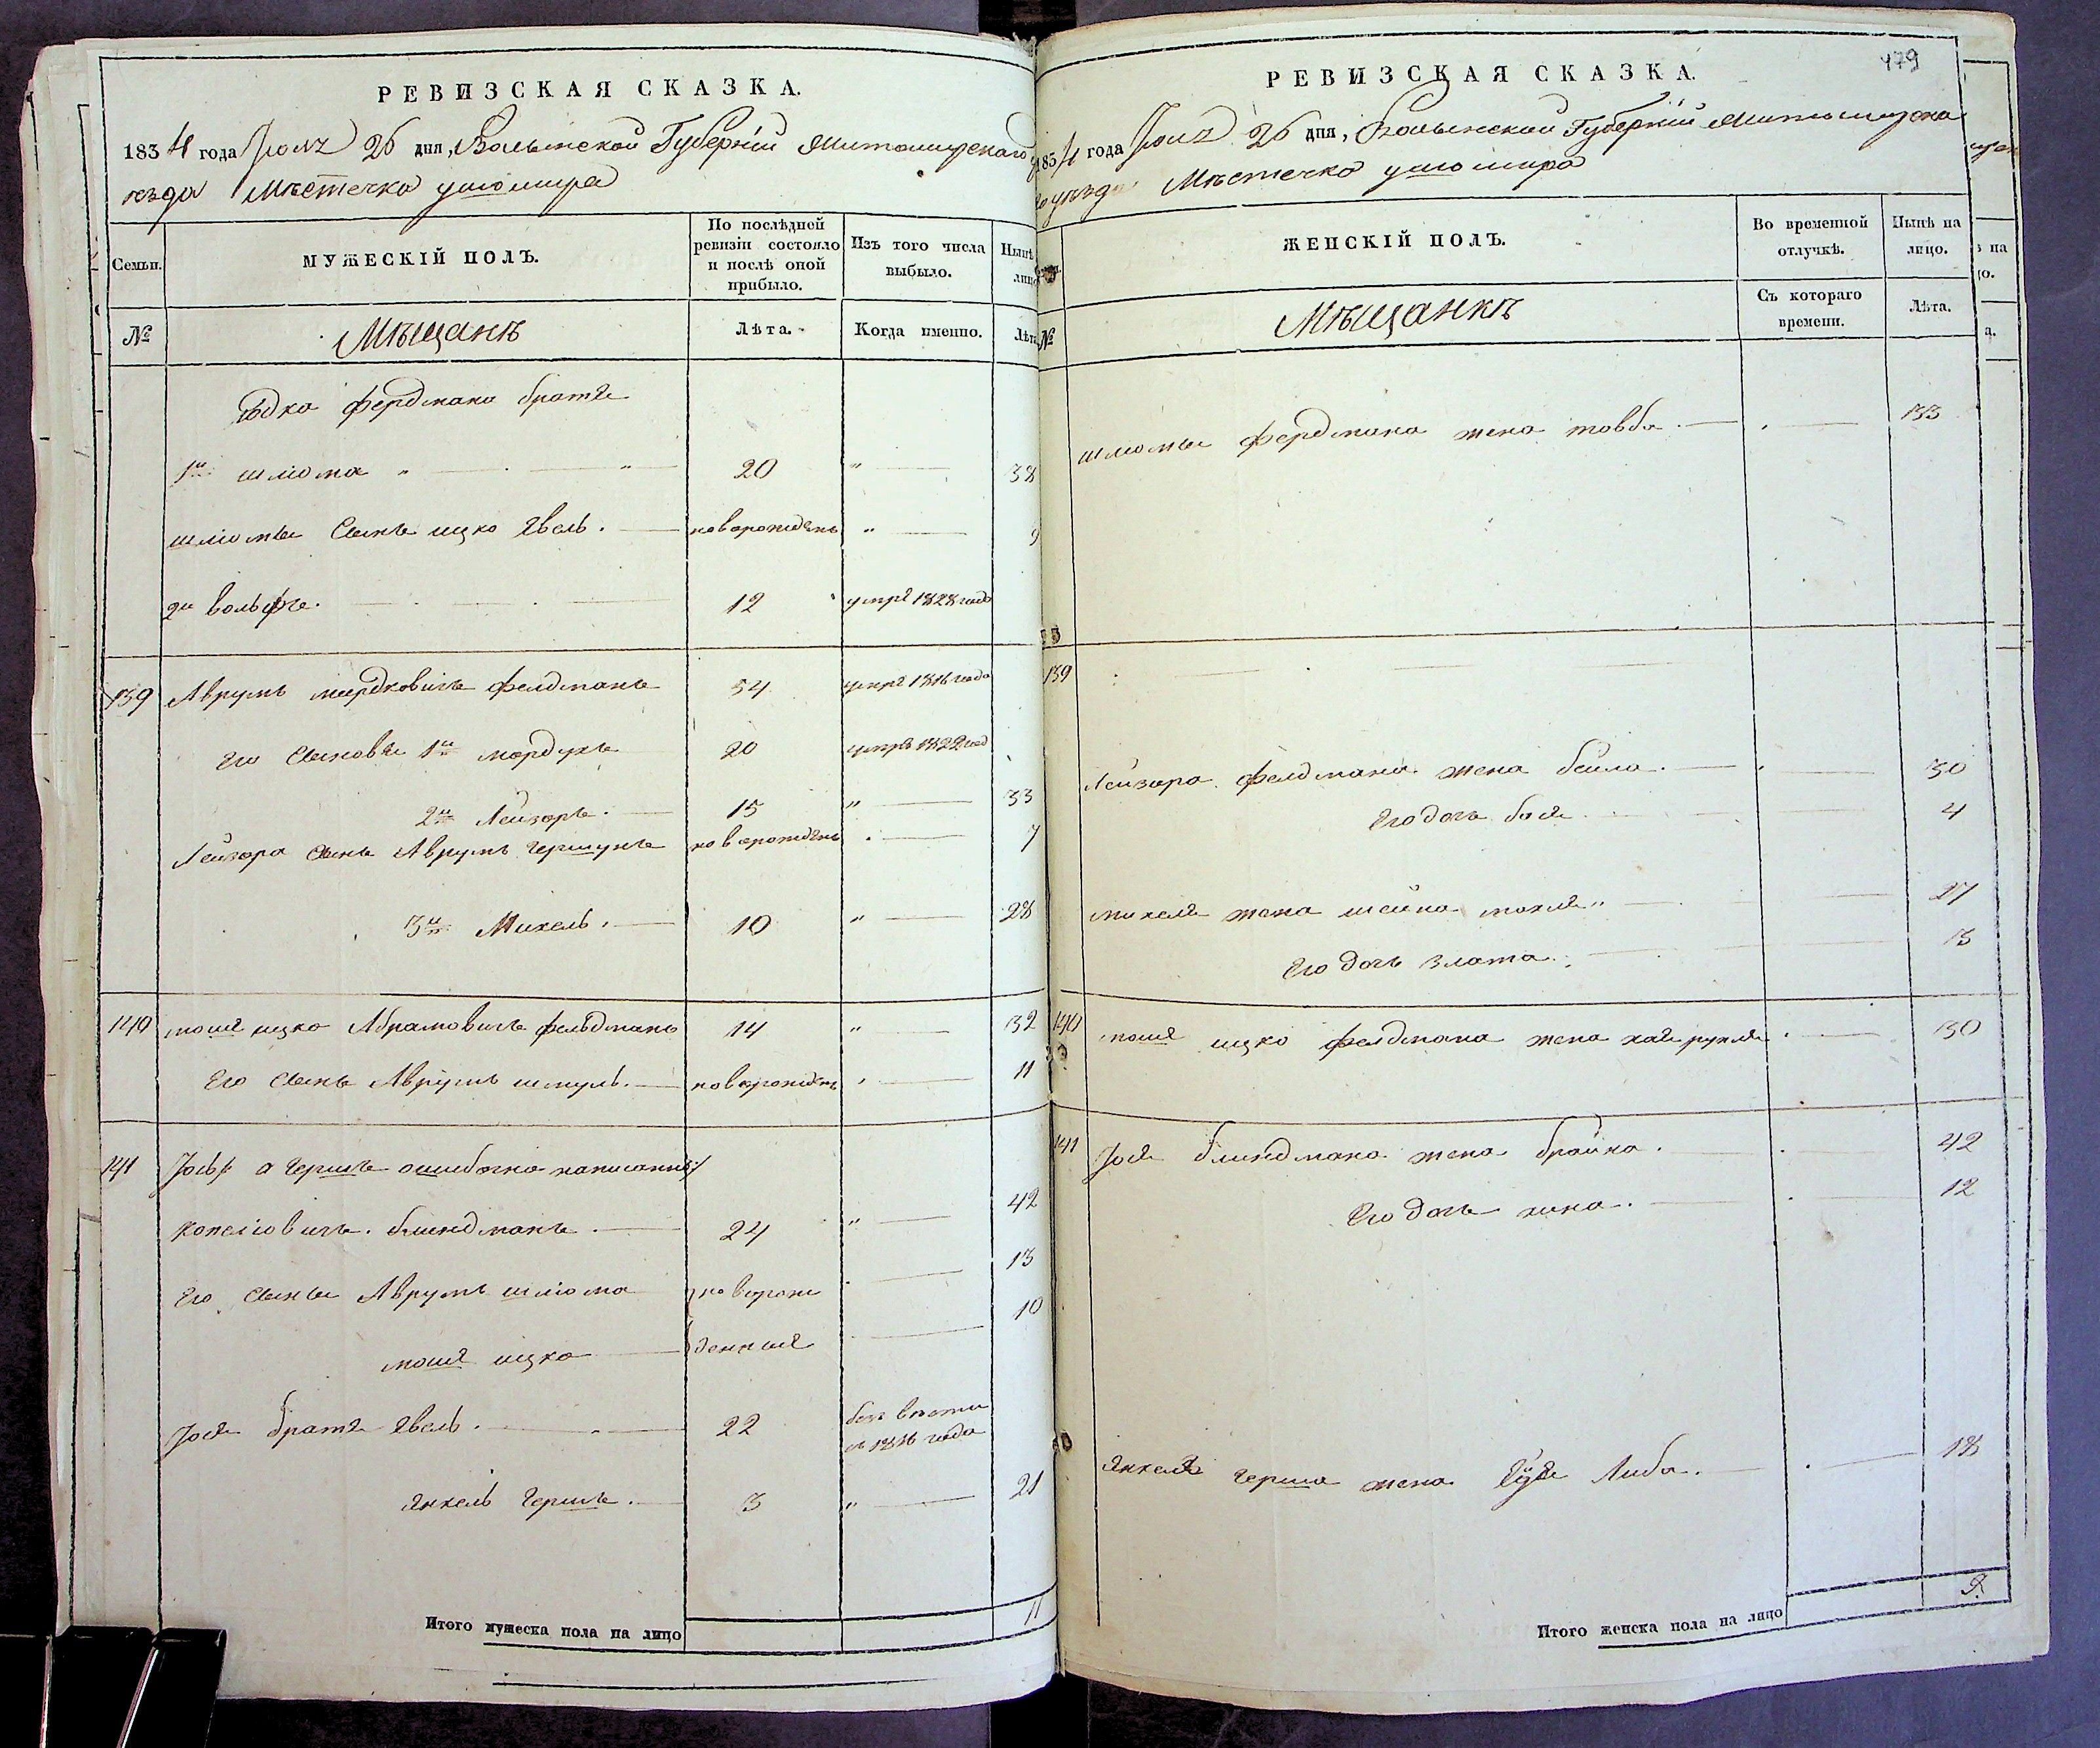 РЕВИЗСКАЯ СКАЗКА.
1834 года 26 дня, Волынской Губернiи Житомирского у
ѣзда Мѣстечка ушомира
Семьи.
МУЖЕСКІЙ ПОЛЪ.
По послѣдней ревизіи состояло и послѣ оной прибыло.
Изъ того числа выбыло.
Нынѣ
лицо
№
Мѣщанѣ
Лѣта.
Когда именно.
Лѣта
фердмана братья
1й шлiома " " 20 " 38
шлiомы Сынъ ицко новорожденъ " 9
2й вольфъ. 12 умре 1828 года
139 Аврумъ мордковичъ фелдманъ 54 умре 1816 года
Его Сыновья 1й мордухъ 20 умре 1822 год
2й Лейзоръ. 15 " 33
Лейзора сынъ Аврумъ гершунъ новорожденъ 7
3й Михель. 10 " 28
140 мошя ицко Абрамовичъ фельдманъ 14 " 32
Его Сынъ Аврумъ шмуль. новорожденъ 11
141 а гершъ ошибочно написанный
блиндманъ. 24 " 42
Его Сыны Аврумъ шлiома новорож 13
мошя ицко денныя 10
брать 22 безъ вѣсти
съ 1816 года
янкель гершъ. 3 " 21
Итого мужеска пола на лицо 11
179
РЕВИЗСКАЯ СКАЗКА.
1834 года 26 дня, Волынской Губернiи Житомирска
го уѣзда Мѣстечка ушомира
ЖЕНСКІЙ ПОЛЪ.
Во временной отлучкѣ.
Нынѣ на лицо.
№
Мѣщанкѣ
Съ котораго времени.
Лѣта.
шлiомы фердмана жена товба. 33
139
Лейзора фелдмана жена бейла. 30
Его дочь бася 4
михеля жена шейна 27
Его дочь злата. 3
140 мошя ицко фелдмана жена хая рухля 30
141 блиндмана жена брайна. 42
Его дочь хана. 12
янкеля герша жена Либа. 18
Итого женска пола на лицо 9.